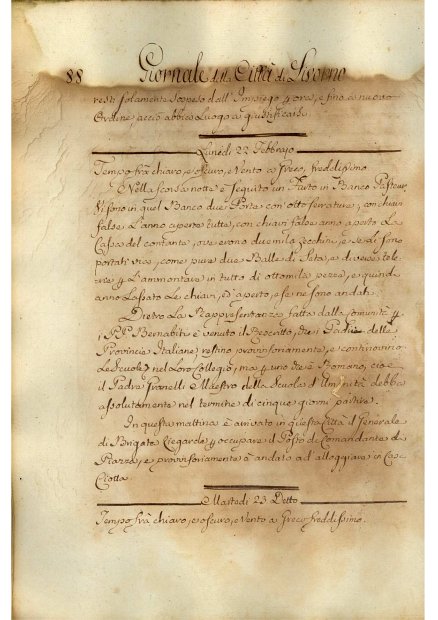 88 Giornale della Città di Livorno
resti solamente sospeso dall'Impiego p ora, e fino a nuovo
Ordine, acciò abbia Luogo a giustificarsi.
Lunedì 22 Febbrajo
Tempo frà chiaro, e oscuro, e Vento a Greco, freddissimo.
Nella scorsa notte è seguito un Furto in Banco Pasteur,
vi sono in quel Banco due Porte con otto serrature, con chiavi
false L'anno aperte tutte, con chiavi false anno aperto La
Cassa del contante, ove erono due mila zecchini, e se li sono
portati via, come pure due Balle di Seta, e diverse tele-
rie p L'ammontare in tutto di ottomila pezze, e quindi
anno Lassato Le chiavi, et aperto, e se ne sono andati.
Dietro La Rappresentanza fatta dalla Comunità p
i PP. Bernabiti è venuto il Rescritto, che i Padri delle
Provincie Italiane, restino provvisoriamente, e continovino
Le Scuole nel Loro Collegio, ma p uno che è Romano, cioè
il Padre Granelli Maestro della Scuola d'Umanità debba
assolutamente nel termine di cinque giorni partire.
In questa mattina è arrivato in questa Città il Generale
di Brigata p occupare il Posto di Comandante di
Piazza, e provvisoriamente è andato ad alloggiare in Casa
Ciotta.
Martedì 23 Detto
Tempo frà chiaro, e oscuro, e Vento a Greco freddissimo.